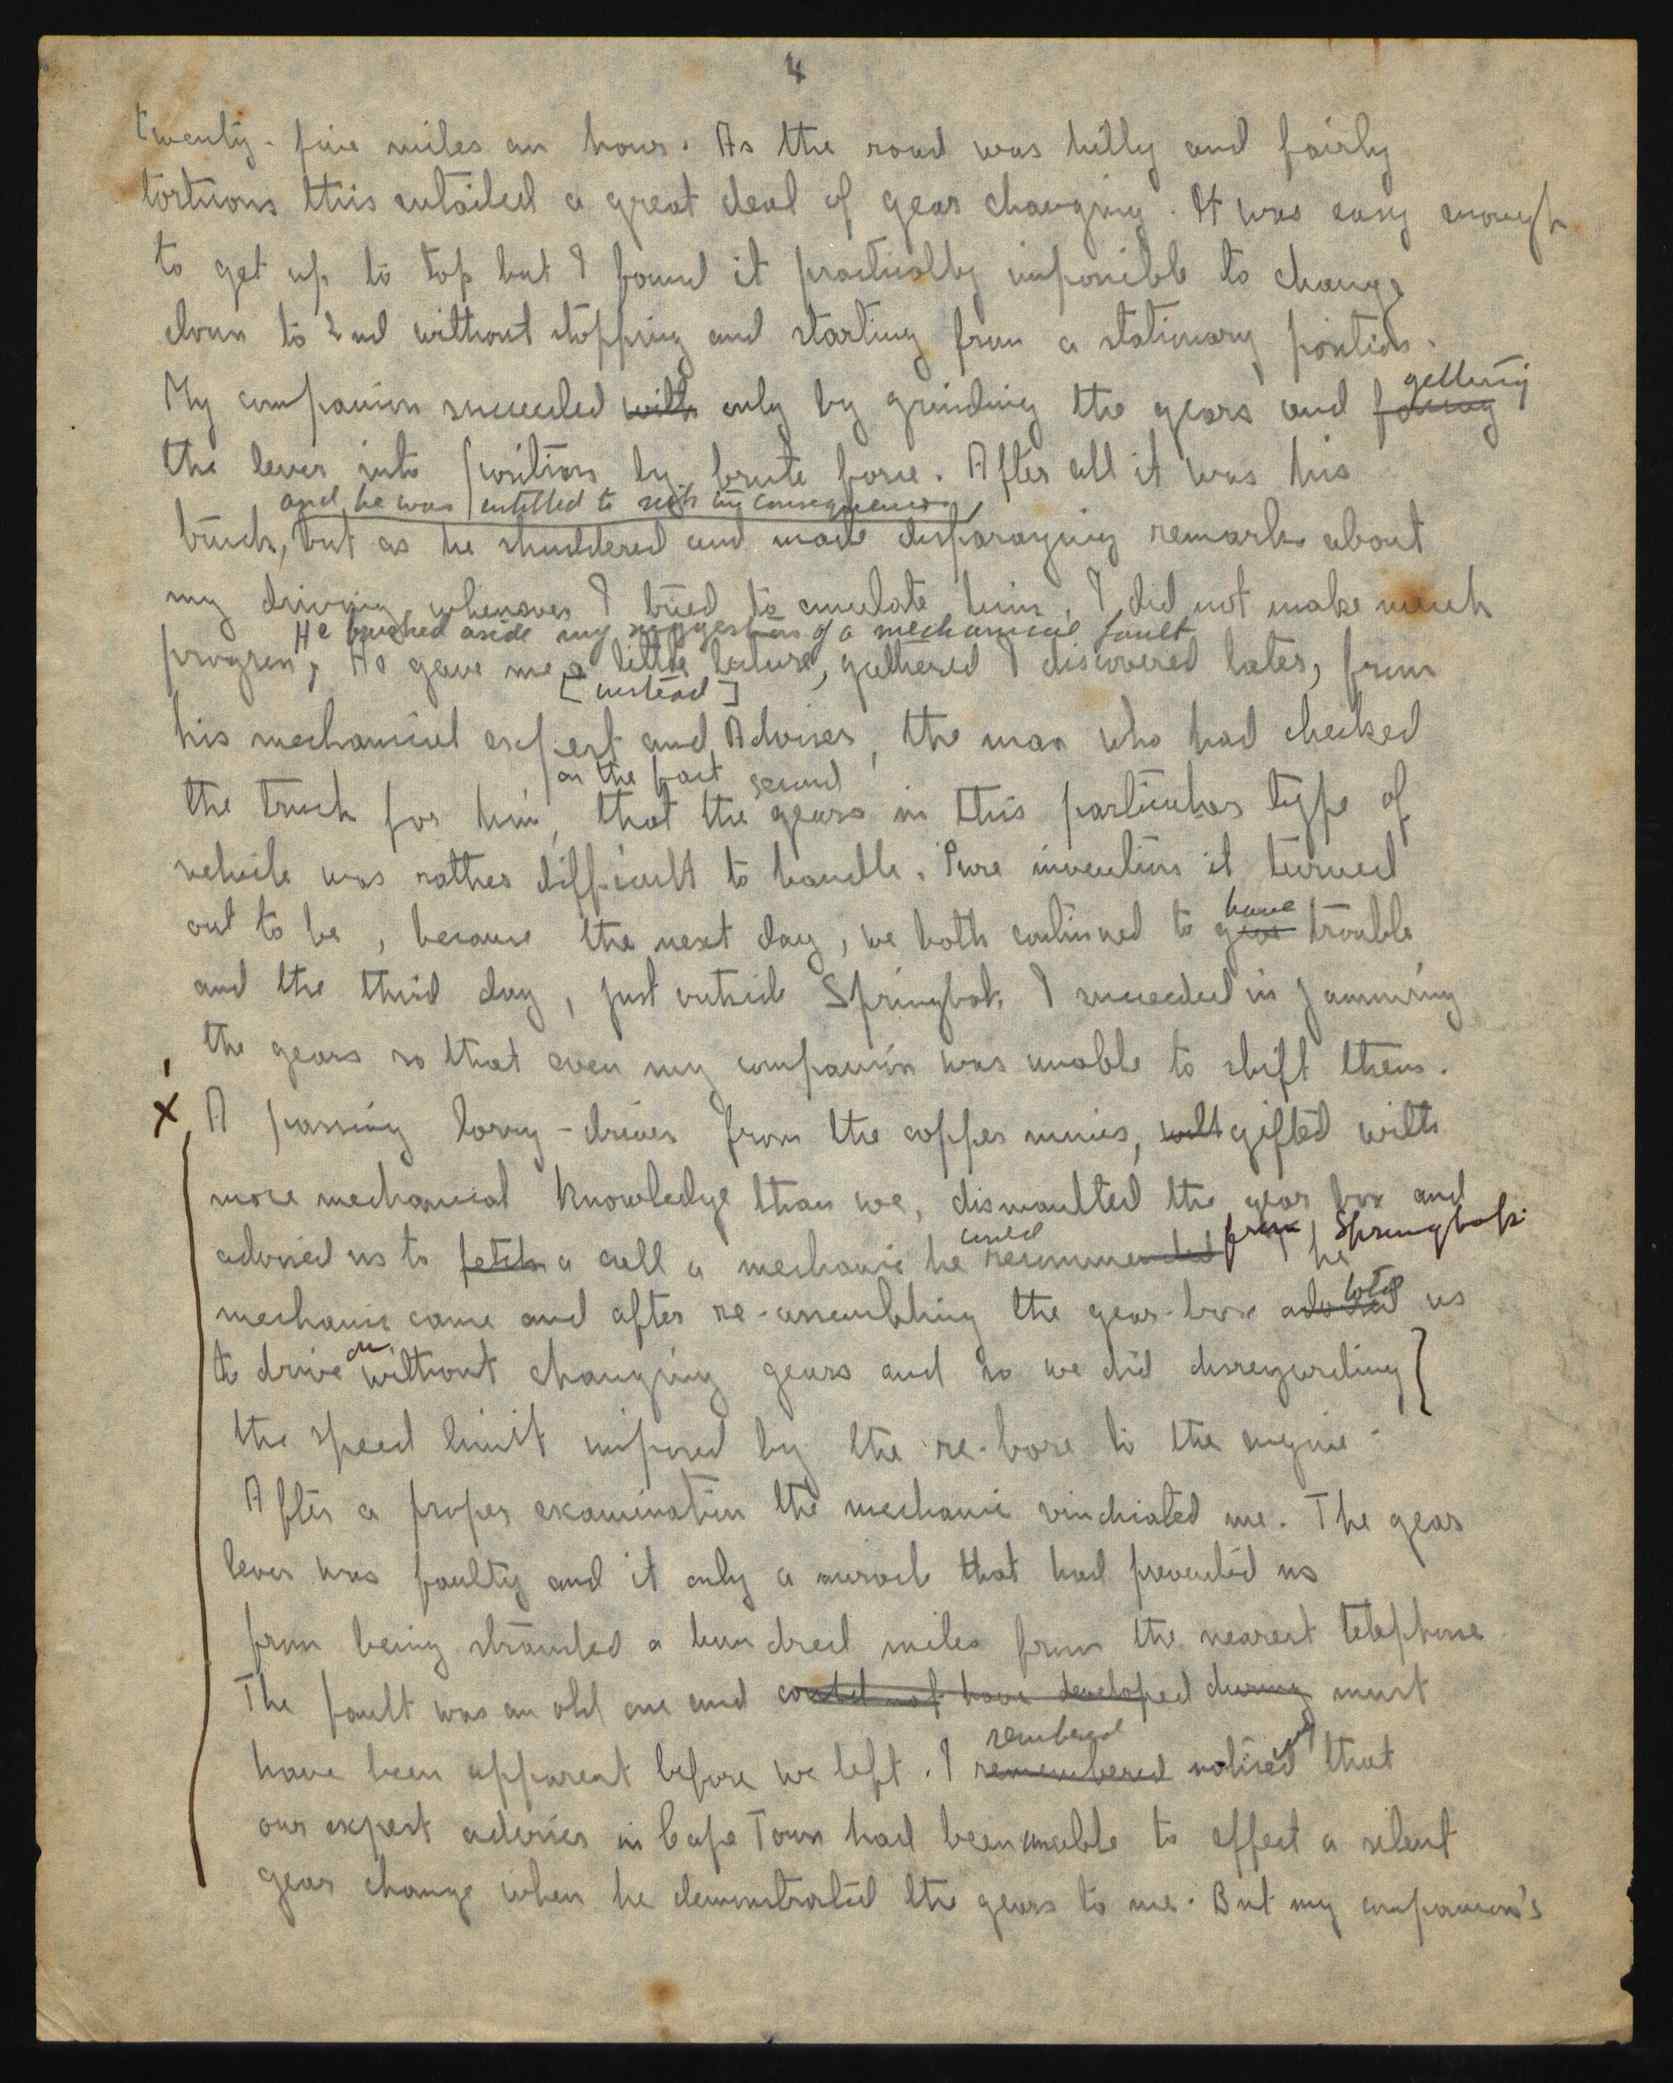 4
twenty-five miles an hour. As the road was hilly and fairly
tortuous this entailed a great deal of gear changing. It was easy enough
to get up to top but I found it practically impossible to change
down to 2nd without stopping and starting from a stationary position.
getting
My companion succeeded with only by grinding the gears and forcing
the lever into position by brute force. After all it was his
and he was entitled to such consequences
truck, but as he shuddered and made disparaging remarks about
my driving whenever I tried to emulate him, I did not make much
He brushed aside my suggestion of a mechanical fault
progress, He gave me a little lecture, gathered I discovered later, from
[instead]
his mechanical expert and Adviser, the man who had checked
on the fact second
the truck for him, that the gears in this particular type of
vehicle was rather difficult to handle. Pure invention it turned
have
out to be, because the next day, we both continued to gear trouble
and the third day, just outside Springbok I succeeded in jamming
the gears so that even my companion was unable to shift them.
x A passing lorry-driver from the copper mines, with gifted with
more mechanical knowledge than we, dismantled the gear box and
from Springbok.
advised us to fetch a call a mechanic he recommended The
told
mechanic came and after re-assembling the gear-box advised us
on
to drive without changing gears and so we did disregarding }
the speed limit imposed by the re-bore to the engine.
After a proper examination the mechanic vindicated me. The gear
lever was faulty and it only a miracle that had prevented us
from being stranded a hundred miles from the nearest telephone
The fault was an old one and could not have developed during must
have been apparent before we left. I remembered noticed that
our expert adviser in Cape Town had been unable to effect a silent
gear change when he demonstrated the gears to me. But my companion's